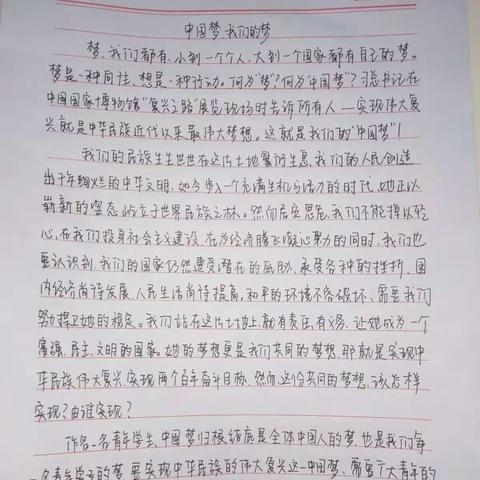 中国梦 我们的梦
梦,我们都有,小到一个个人,大到一个国家都有自己的梦。
梦是一种向往,想是一种行动。何为"梦"?何为"中国梦"?习总书记在
中国国家博物馆"复兴之路"展览现场时告诉所有人——实现伟大复
兴就是中华民族近代以来最伟大梦想。这就是我们的"中国梦"!
我们的民族生生世世在这片土地繁衍生息,我们的人民创造
出千年绚烂的中华文明,如今步入一个充满生机与活力的时代,她正以
崭新的姿态屹立于世界民族之林。然而居安思危,我们不能掉以轻
心,在我们投身社会主义建设,在为经济腾飞凝心聚力的同时,我们也
要认识到,我们的国家仍然遭受潜在的威胁,承受各种的挫折,国
内经济尚待发展,人民生活尚待提高,和平的环境不容破坏,需要我们
努力捍卫她的稳定。我们站在这片土地上,就有责任,有义务,让她成为一个
富强、民主、文明的国家。她的梦想更是我们共同的梦想,那就是实现中
华民族伟大复兴,实现两个百年奋斗目标,然而,这份共同的梦想,该怎样
实现?由谁实现?
作为一名青年学生,中国梦归根结底是全体中国人的梦,也是我们每
一名青年学子的梦,要实现中华民族的伟大复兴这一中国梦,需要广大青年的